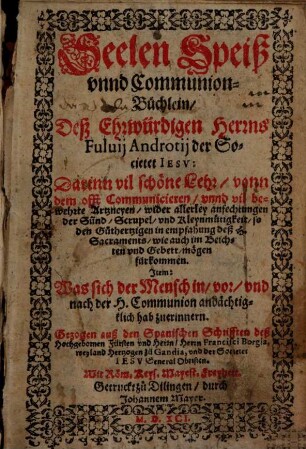 Seelen Speiß
vnnd Communion-
Büchlein/
Deß Ehrwürdigen Herrns
Fuluij Androtij der So-
cietet IESV:
Darinn vil schöne Lehr/ vonn
dem offt Communicieren/ vnnd vil be-
wehrte Artzneyen/ wider allerley anfechtungen
der Sünd/ Scrupel/ vnd Kleynmütigkeit/ so
den Gůthertzigen in empfahung deß H.
Sacraments/ wie auch im Beich-
ten vnd Gebett/ mögen
fürkommen.
Item:
Was sich der Mensch in/ vor/ vnd
nach der H. Communion andächtig-
klich hab zuerinnern.
Gezogen auß den Spanischen Schrifften deß
Hochgebornen Fürsten vnd Herrn/ Herrn Francisci Borgia,
weyland Hertzogen zů Gandia, vnd der Societet
IESV General Obristen.
Mit Röm. Keys. Mayest. Freyheit.
Getruckt zů Dilingen/ durch
Johannem Mayer.
M. D. XCI.